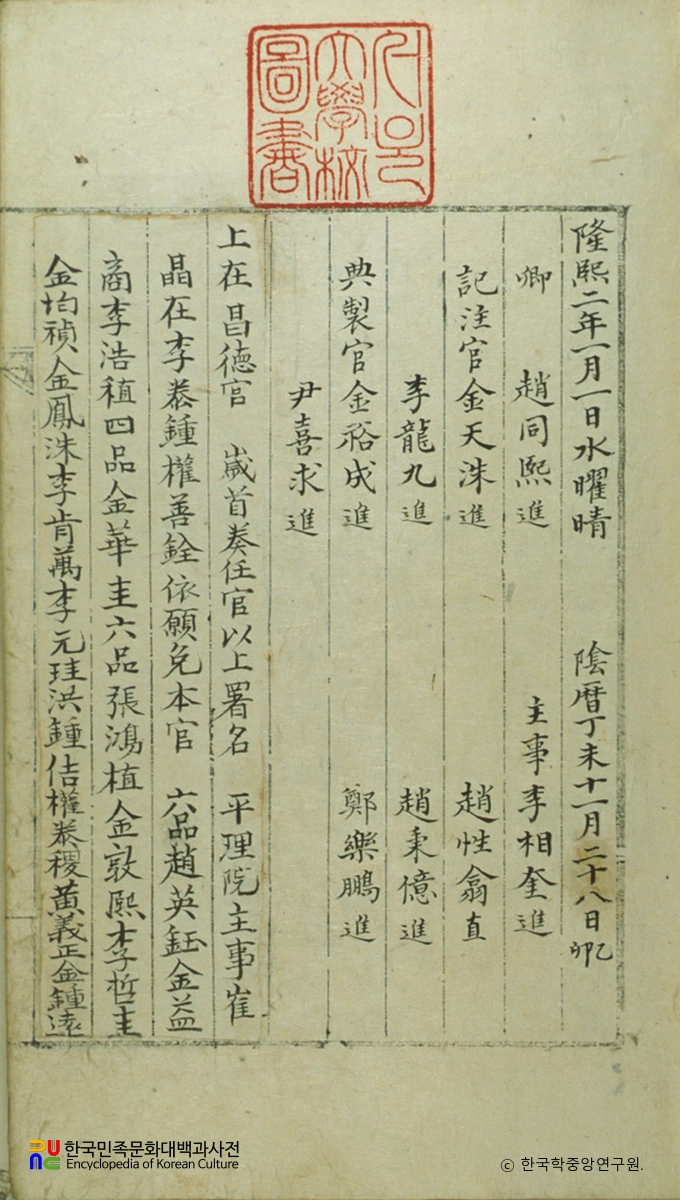 서울大學校圖書
隆熙二年一月一日水曜晴 陰曆丁未十一月二十八日乙卯
卿 趙同熙進 主事李相奎進
記注官金天洙進 趙性翕直
李龍九進 趙秉億進
典製官金裕成進 鄭樂鵬進
尹喜求進
上在昌德宮 歲首奏任官以上署名 平理院主事崔
晶在李泰鍾權善銓依願免本官 六品趙英鈺金益
商李浩稙四品金華圭六品張鴻植金敦熙李哲圭
金均禎金鳳洙李肯萬李元珪洪鍾佶權泰稷黃義正金鍾遠
한국민족문화대백과사전
Encyclopedia of Korean Culture
ⓒ 한국학중앙연구원.